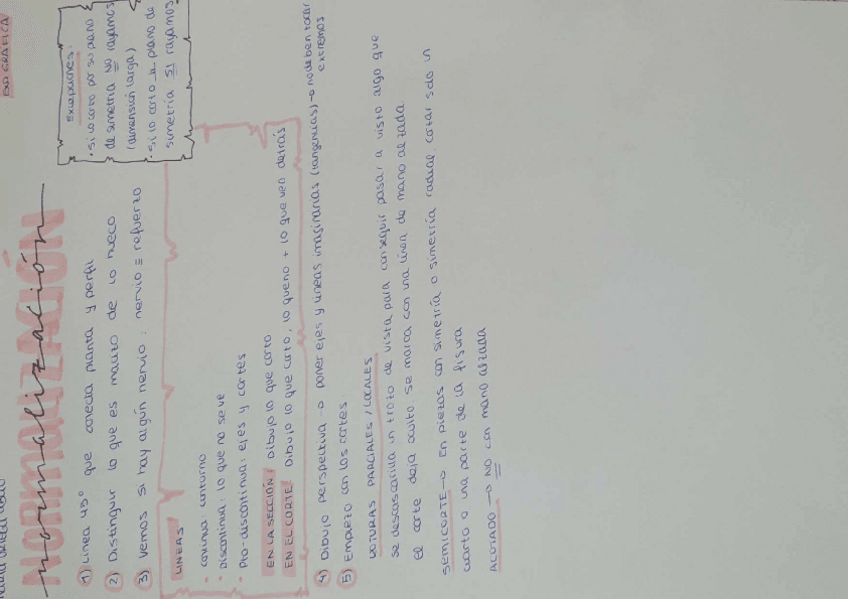 EXP GRÁFICA
NORMALIZACIÓN
normalización
Excepciones:
· si lo corto por su plano
de simetría NO rayamos
(dimensión larga)
· si lo corto plano de
simetría SI rayamos
1) Línea 45º que conecta planta y perfil
2) Distinguir lo que es macizo de lo hueco
3) Vemos si hay algún nervio: nervio = refuerzo
LINEAS
- continua: contorno
- Discontinua: lo que no se ve
- Pto-discontinua: ejes y cortes
EN LA SECCIÓN: Dibujo lo que corto
EN EL CORTE: Dibujo lo que corto, lo que no + lo que veo detrás
4) Dibujo perspectiva → poner ejes y lineas imaginarias (tangencias) → no deben tocar
extremos
5) Empiezo con los cortes.
ROTURAS PARCIALES / LOCALES
se descascarilla un trozo de vista, para conseguir pasar a visto algo que
el corte deja oculto. Se marca con una línea de mano alzada
SEMICORTE → En piezas con simetría o simetría radial. cortar solo un
cuarto o una parte de la figura
ACOTADO → NO con mano alzada